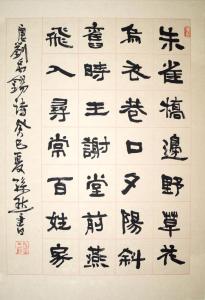 朱雀橋邊野草花
烏衣巷口夕陽斜
舊時王謝堂前燕
飛入尋常百姓家
唐劉禹錫詩癸巳夏 書